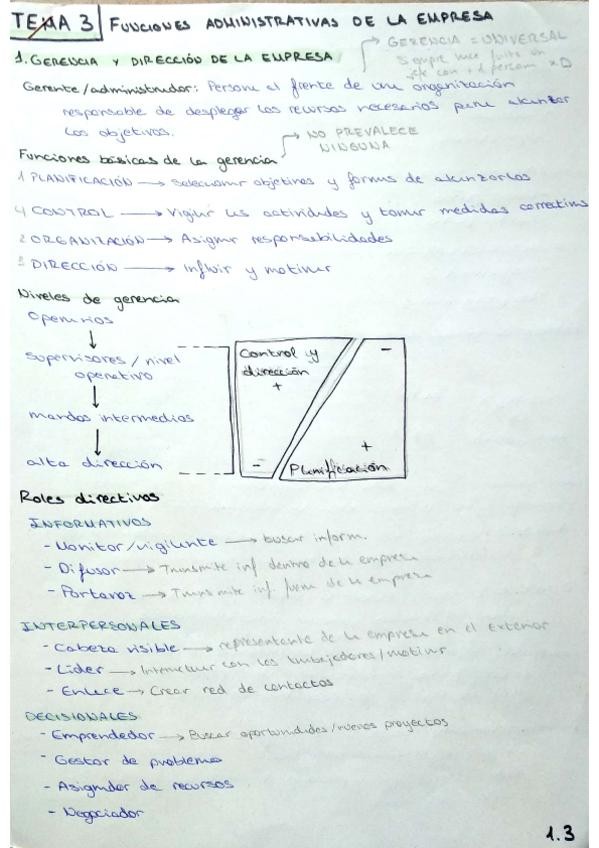 TEMA 3 FUNCIONES ADMINISTRATIVAS DE LA EMPRESA
1. GERENCIA Y DIRECCIÓN DE LA EMPRESA
→ GERENCIA = UNIVERSAL
Siempre hace falta un
jefe con + 1 persona xD
Gerente/administrador: Persona al frente de una organización
responsable de desplegar los recursos necesarios para alcanzar
los objetivos.
→ NO PREVALECE
NINGUNA
Funciones básicas de la gerencia
1 PLANIFICACIÓN → Seleccionar objetivos y formas de alcanzarlos
4 CONTROL → Vigilar las actividades y tomar medidas correctivas
2 ORGANIZACIÓN → Asignar responsabilidades
3 DIRECCIÓN → Influir y motivar
Niveles de gerencia
Operarios
↓
supervisores / nivel
operativo
↓
mandos intermedios
↓
alta dirección
Control y
dirección
+
-
-
+
Planificación
Roles directivos
INFORMATIVOS
- Monitor/vigilante → buscar inform.
- Difusor → Transmite inf dentro de la empresa
- Portavoz → Transmite inf. fuera de la empresa
INTERPERSONALES
- Cabeza visible → representante de la empresa en el exterior
- Líder → Interactuar con los trabajadores/motivar
- Enlace → Crear red de contactos
DECISIONALES
- Emprendedor → Buscar oportunidades/nuevos proyectos
- Gestor de problemas
- Asignador de recursos
- Negociador
1.3